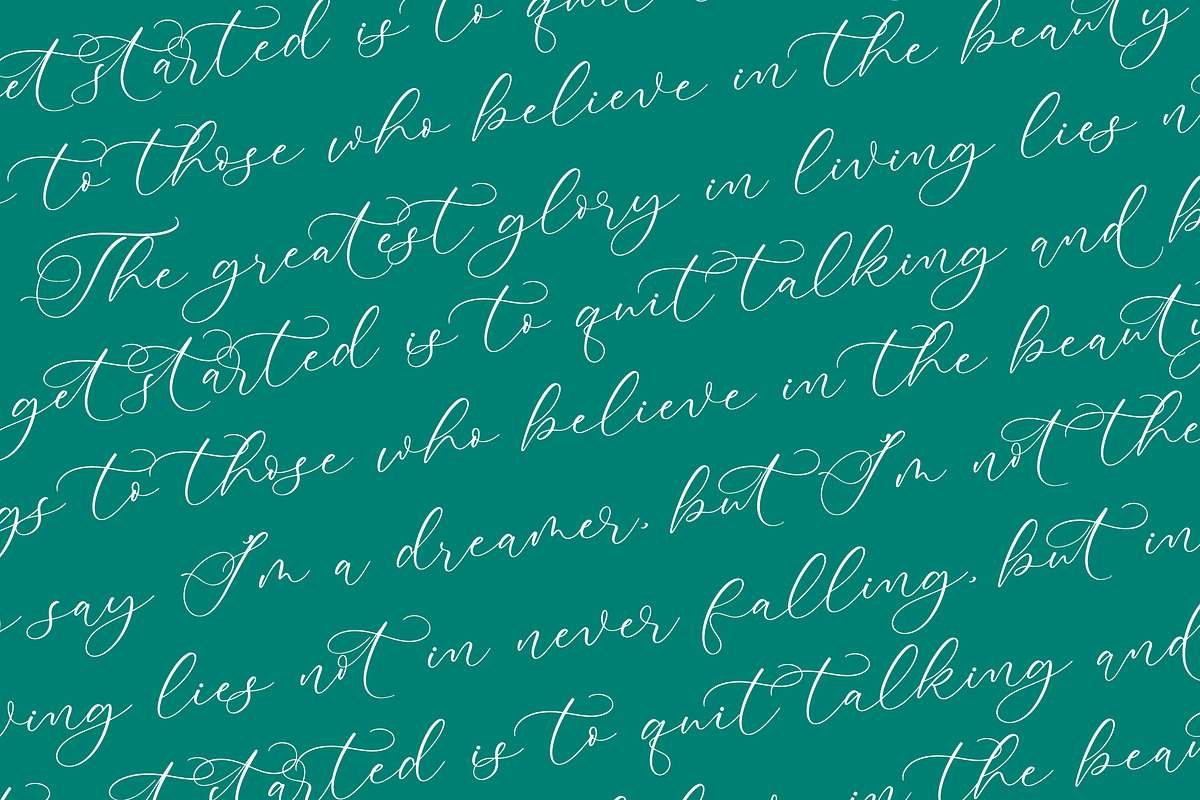 get started is to quit
to those who believe in the beauty
The greatest glory in living lies
get started is to quit talking and
to those who believe in the beauty
say I'm a dreamer, but I'm not the
lies not in never falling, but in
started is to quit talking and
in the